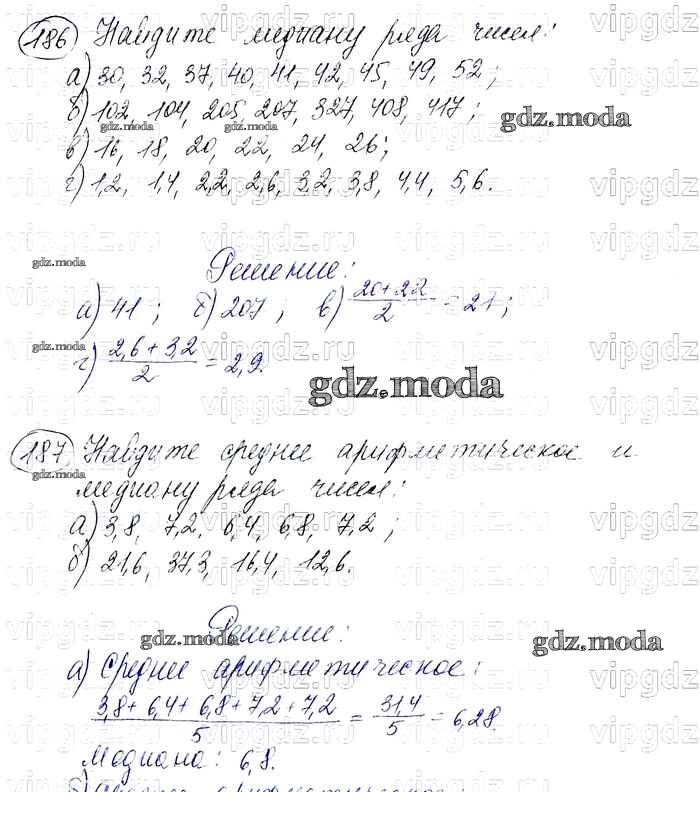 186 Найдите медиану ряда чисел:
а) 30, 32, 37, 40, 41, 42, 45, 49, 52;
б) 102, 104, 205, 207, 327, 408, 417;
в) 16, 18, 20, 22, 24, 26;
г) 1,2, 1,4, 2,2, 2,6, 3,2, 3,8, 4,4, 5,6.
Решение:
а) 41; б) 207; в) (20+22)/2 = 21;
г) (2,6+3,2)/2 = 2,9.
187 Найдите среднее арифметическое и
медиану ряда чисел:
а) 3,8, 7,2, 6,4, 6,8, 7,2;
б) 21,6, 37,3, 16,4, 12,6.
Решение:
а) Среднее арифметическое:
(3,8+6,4+6,8+7,2+7,2)/5 = 31,4/5 = 6,28.
Медиана: 6,8.
gdz.moda
vipgdz.ru